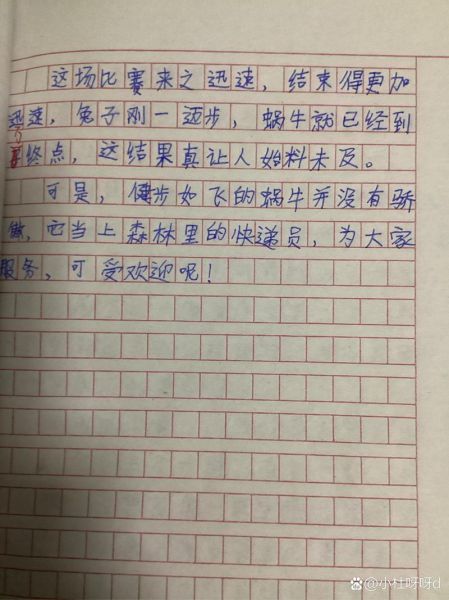 这场比赛来之迅速，结束得更加
迅速，兔子刚一迈步，蜗牛就已经到
了终点，这结果真让人始料未及。
可是，健步如飞的蜗牛并没有骄
傲，它当上森林里的快递员，为大家
服务，可受欢迎呢！
小杜呀呀d